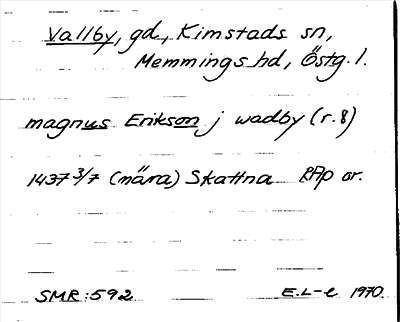 Vallby, gd., Kimstads sn,
Memmings hd, Östg. l.
magnus Erikson j wadby (r. 8)
1437 3/7 (nära) Skattna RAp or.
SMR:592 E.L-e 1970.